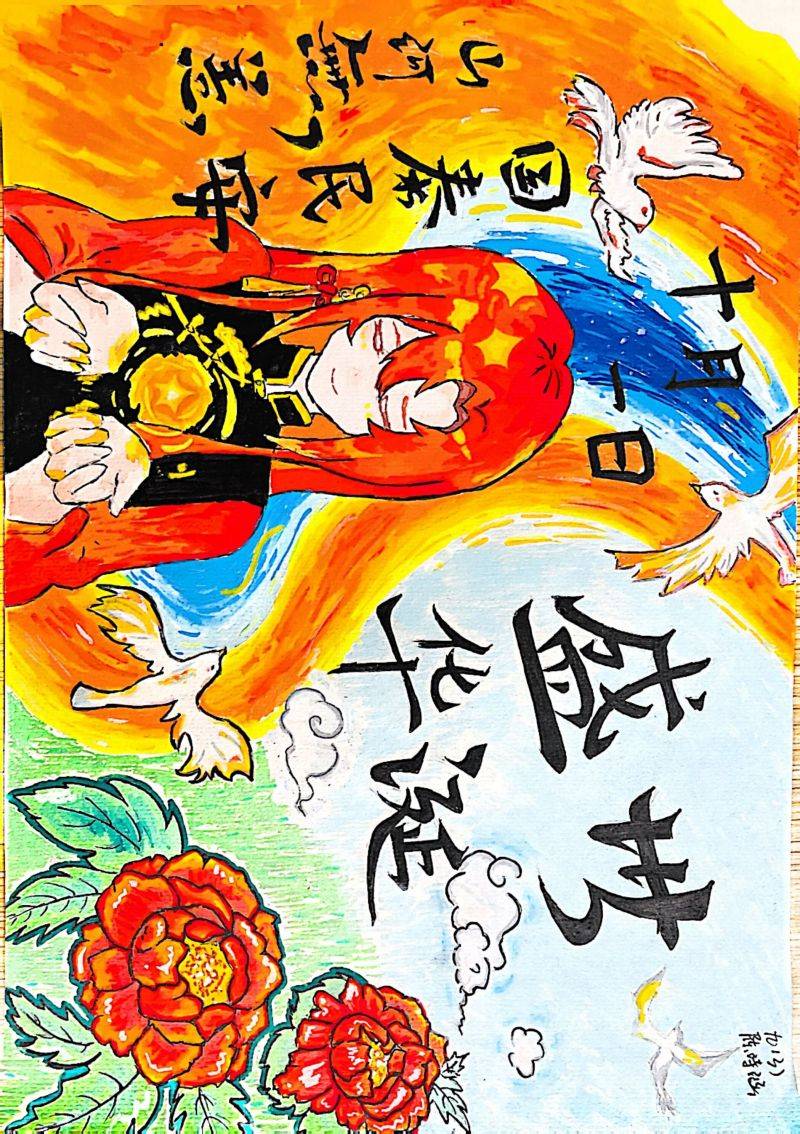 山河無恙
国泰民安
十月
一日
盛世
华诞